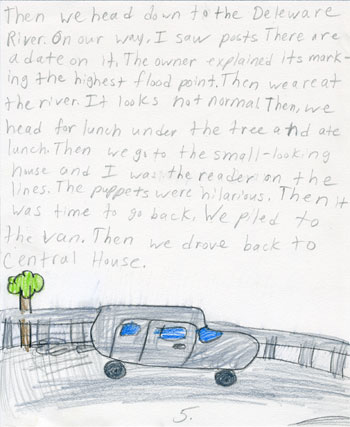 Then we head down to the Deleware
River. On our way, I saw posts There are
a date on it, The owner explained its mark-
ing the highest flood point. Then we are at
the river. It looks not normal Then, we
head for lunch under the tree and ate
lunch. Then we go to the small-looking
house and I was the reader on the
lines. The puppets were hilarious. Then it
was time to go back. We piled to
the van. Then we drove back to
Central House.
5.